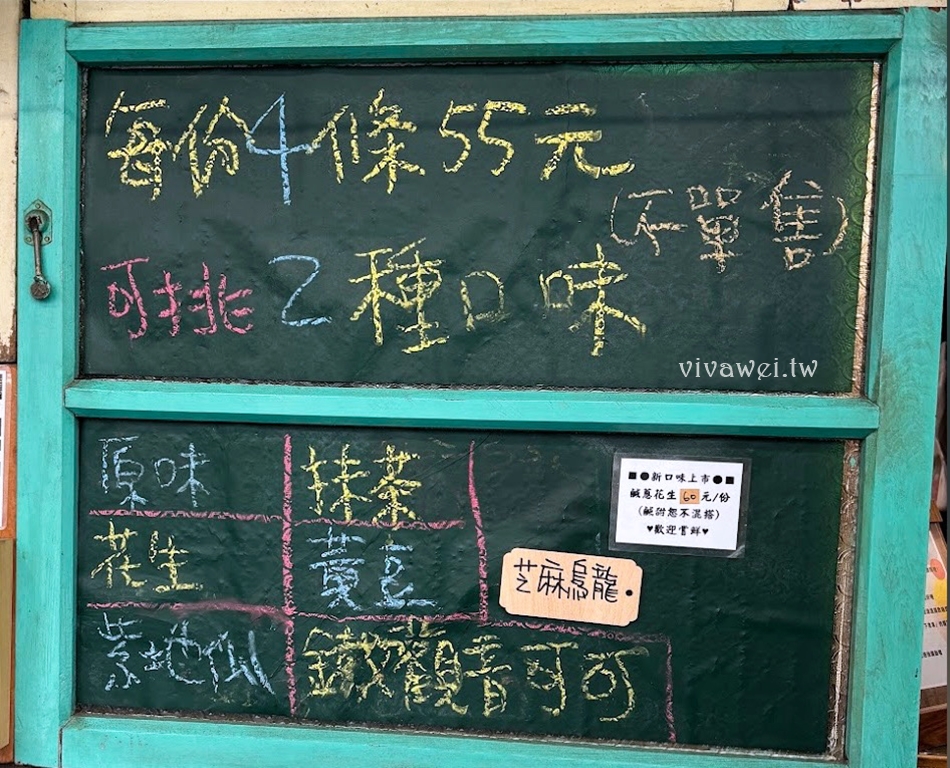 每份4條55元
(不單售)
可挑2種口味
vivawei.tw
原味 抹茶
花生 黃豆
紫地瓜 鐵觀音可可
芝麻烏龍
■●新口味上市●■
鹹蔥花生60元/份
(鹹甜恕不混搭)
♥歡迎嘗鮮♥